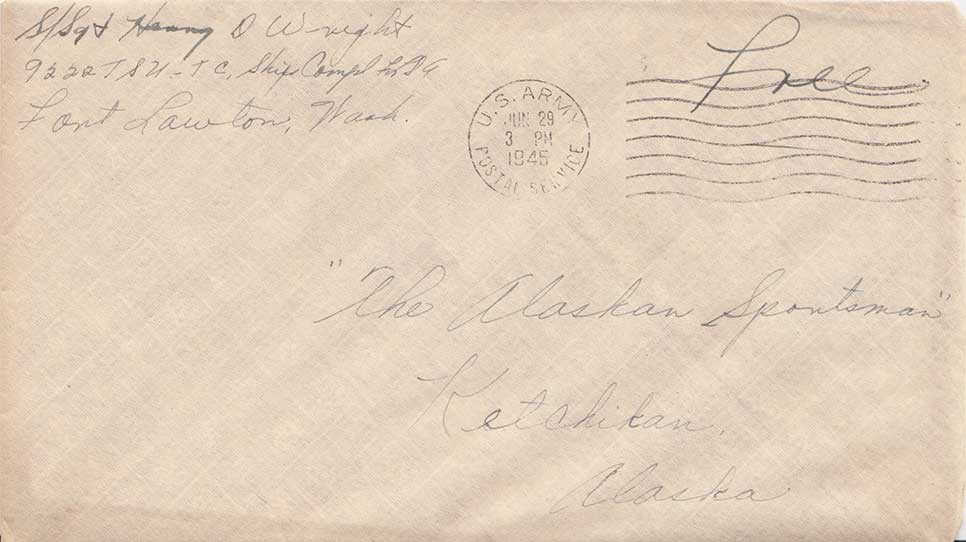 S/Sgt Henry O Wright
9222 TSU-TC, Ship Compl
Fort Lawton, Wash.
U.S. ARMY
JUN 29
3 PM
1945
POSTAL SERVICE
Free
"The Alaskan Sportsman"
Ketchikan,
Alaska